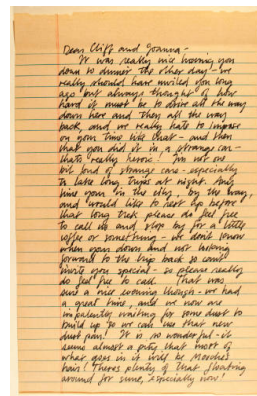 Dear Cliff and Joanna -
It was really nice having you
down to dinner the other day - we
really should have invited you long
ago but always thought of how
hard it must be to drive all the way
down here and then all the way
back, and we really hate to impose
on your time like that - and then
that you did it in a strange car -
thats really heroic! I'm not one
bit fond of strange cars - especially
to take long trips at night. Any
time you in the city, by the way,
and would like to rest up before
that long trek please do feel free
to call us and stop by for a little
coffee or something - we don't know
when your down and not looking
forward to the trip back so cant
invite you special - so please really
do feel free to call. That was
sure a nice evening though - we had
a great time, and we now are
impatiently waiting for some dust to
build up so we can use that new
dust pan! It is so wonderful - it
seems almost a pity that most of
what goes in it will be
hair! Theres plenty of that floating
around for sure, especially now!